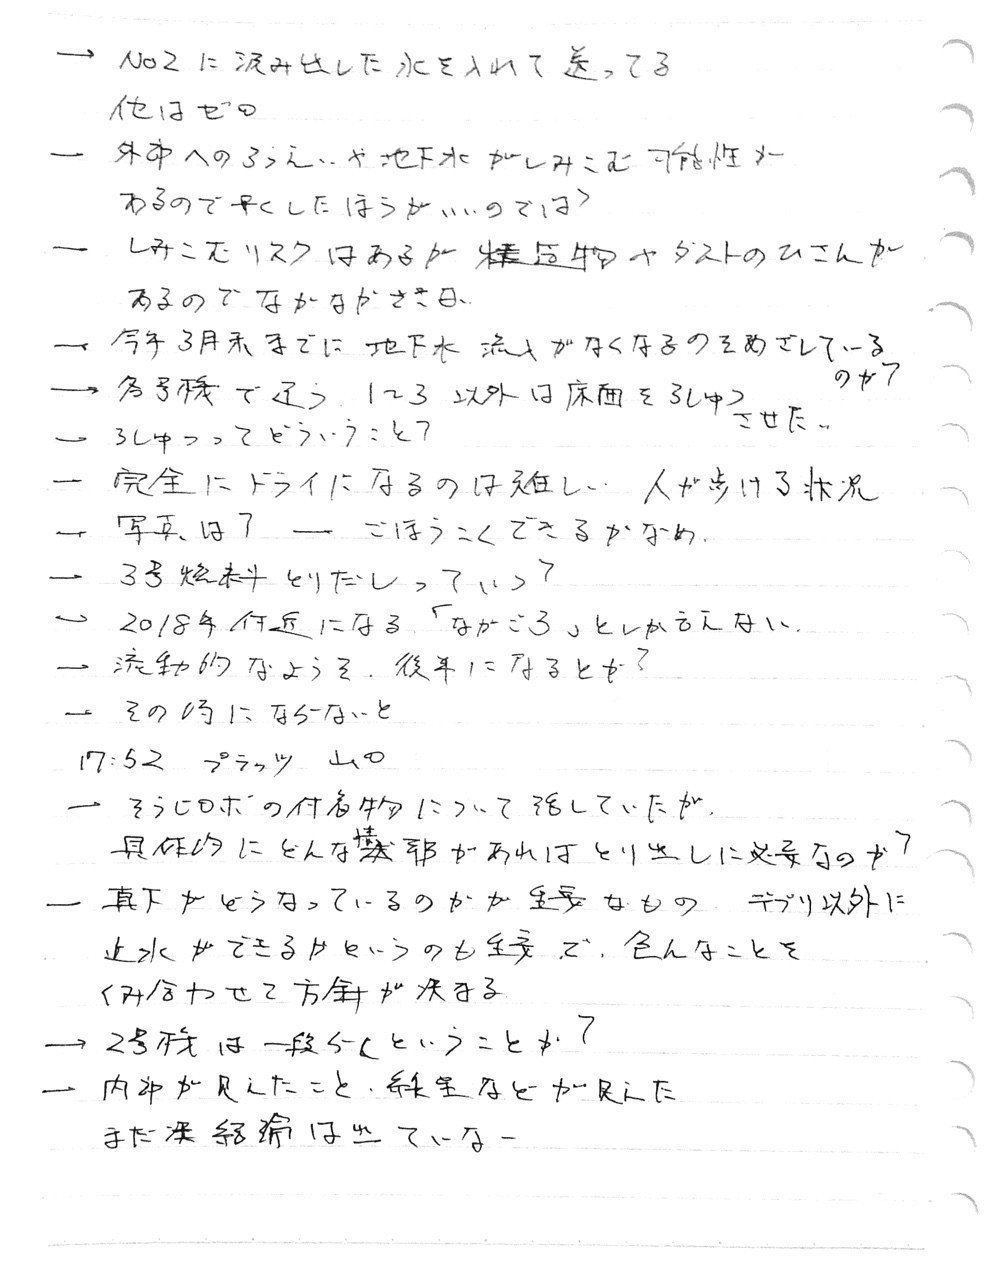 → No2に汲み出した水を入れて送ってる
他はゼロ
— 外部へのろうえいや地下水がしみこむ可能性が
あるので早くしたほうがいいのでは?
— しみこむリスクはあるが構造物やダストのひさんが
あるのでなかなか
— 今年3月末までに地下水流入がなくなるのをめざしている
のか?
→ 各号機で違う 1~3以外は床面をろしゅつ
させた..
— ろしゅつってどういうこと?
— 完全にドライになるのは難しい 人が歩ける状況
— 写真は? — ごほうこくできるかなめ.
— 3号燃料とりだしっていつ?
— 2018年付近になる 「なかごろ」としか言えない.
— 流動的なようそ. 後半になるとか?
— その時にならないと
17:52 プラッツ 山口
— そうじロボの付着物について話していたが.
具体的にどんな情報があればとり出しに必要なのか?
— 真下がどうなっているのかが重要なもの デブリ以外に
止水ができるかというのも重要で. 色んなことを
くみ合わせて方針が決まる
→ 2号機は一段らくということか?
— 内部が見えたこと. など が見えた
まだ 結論は出ていない